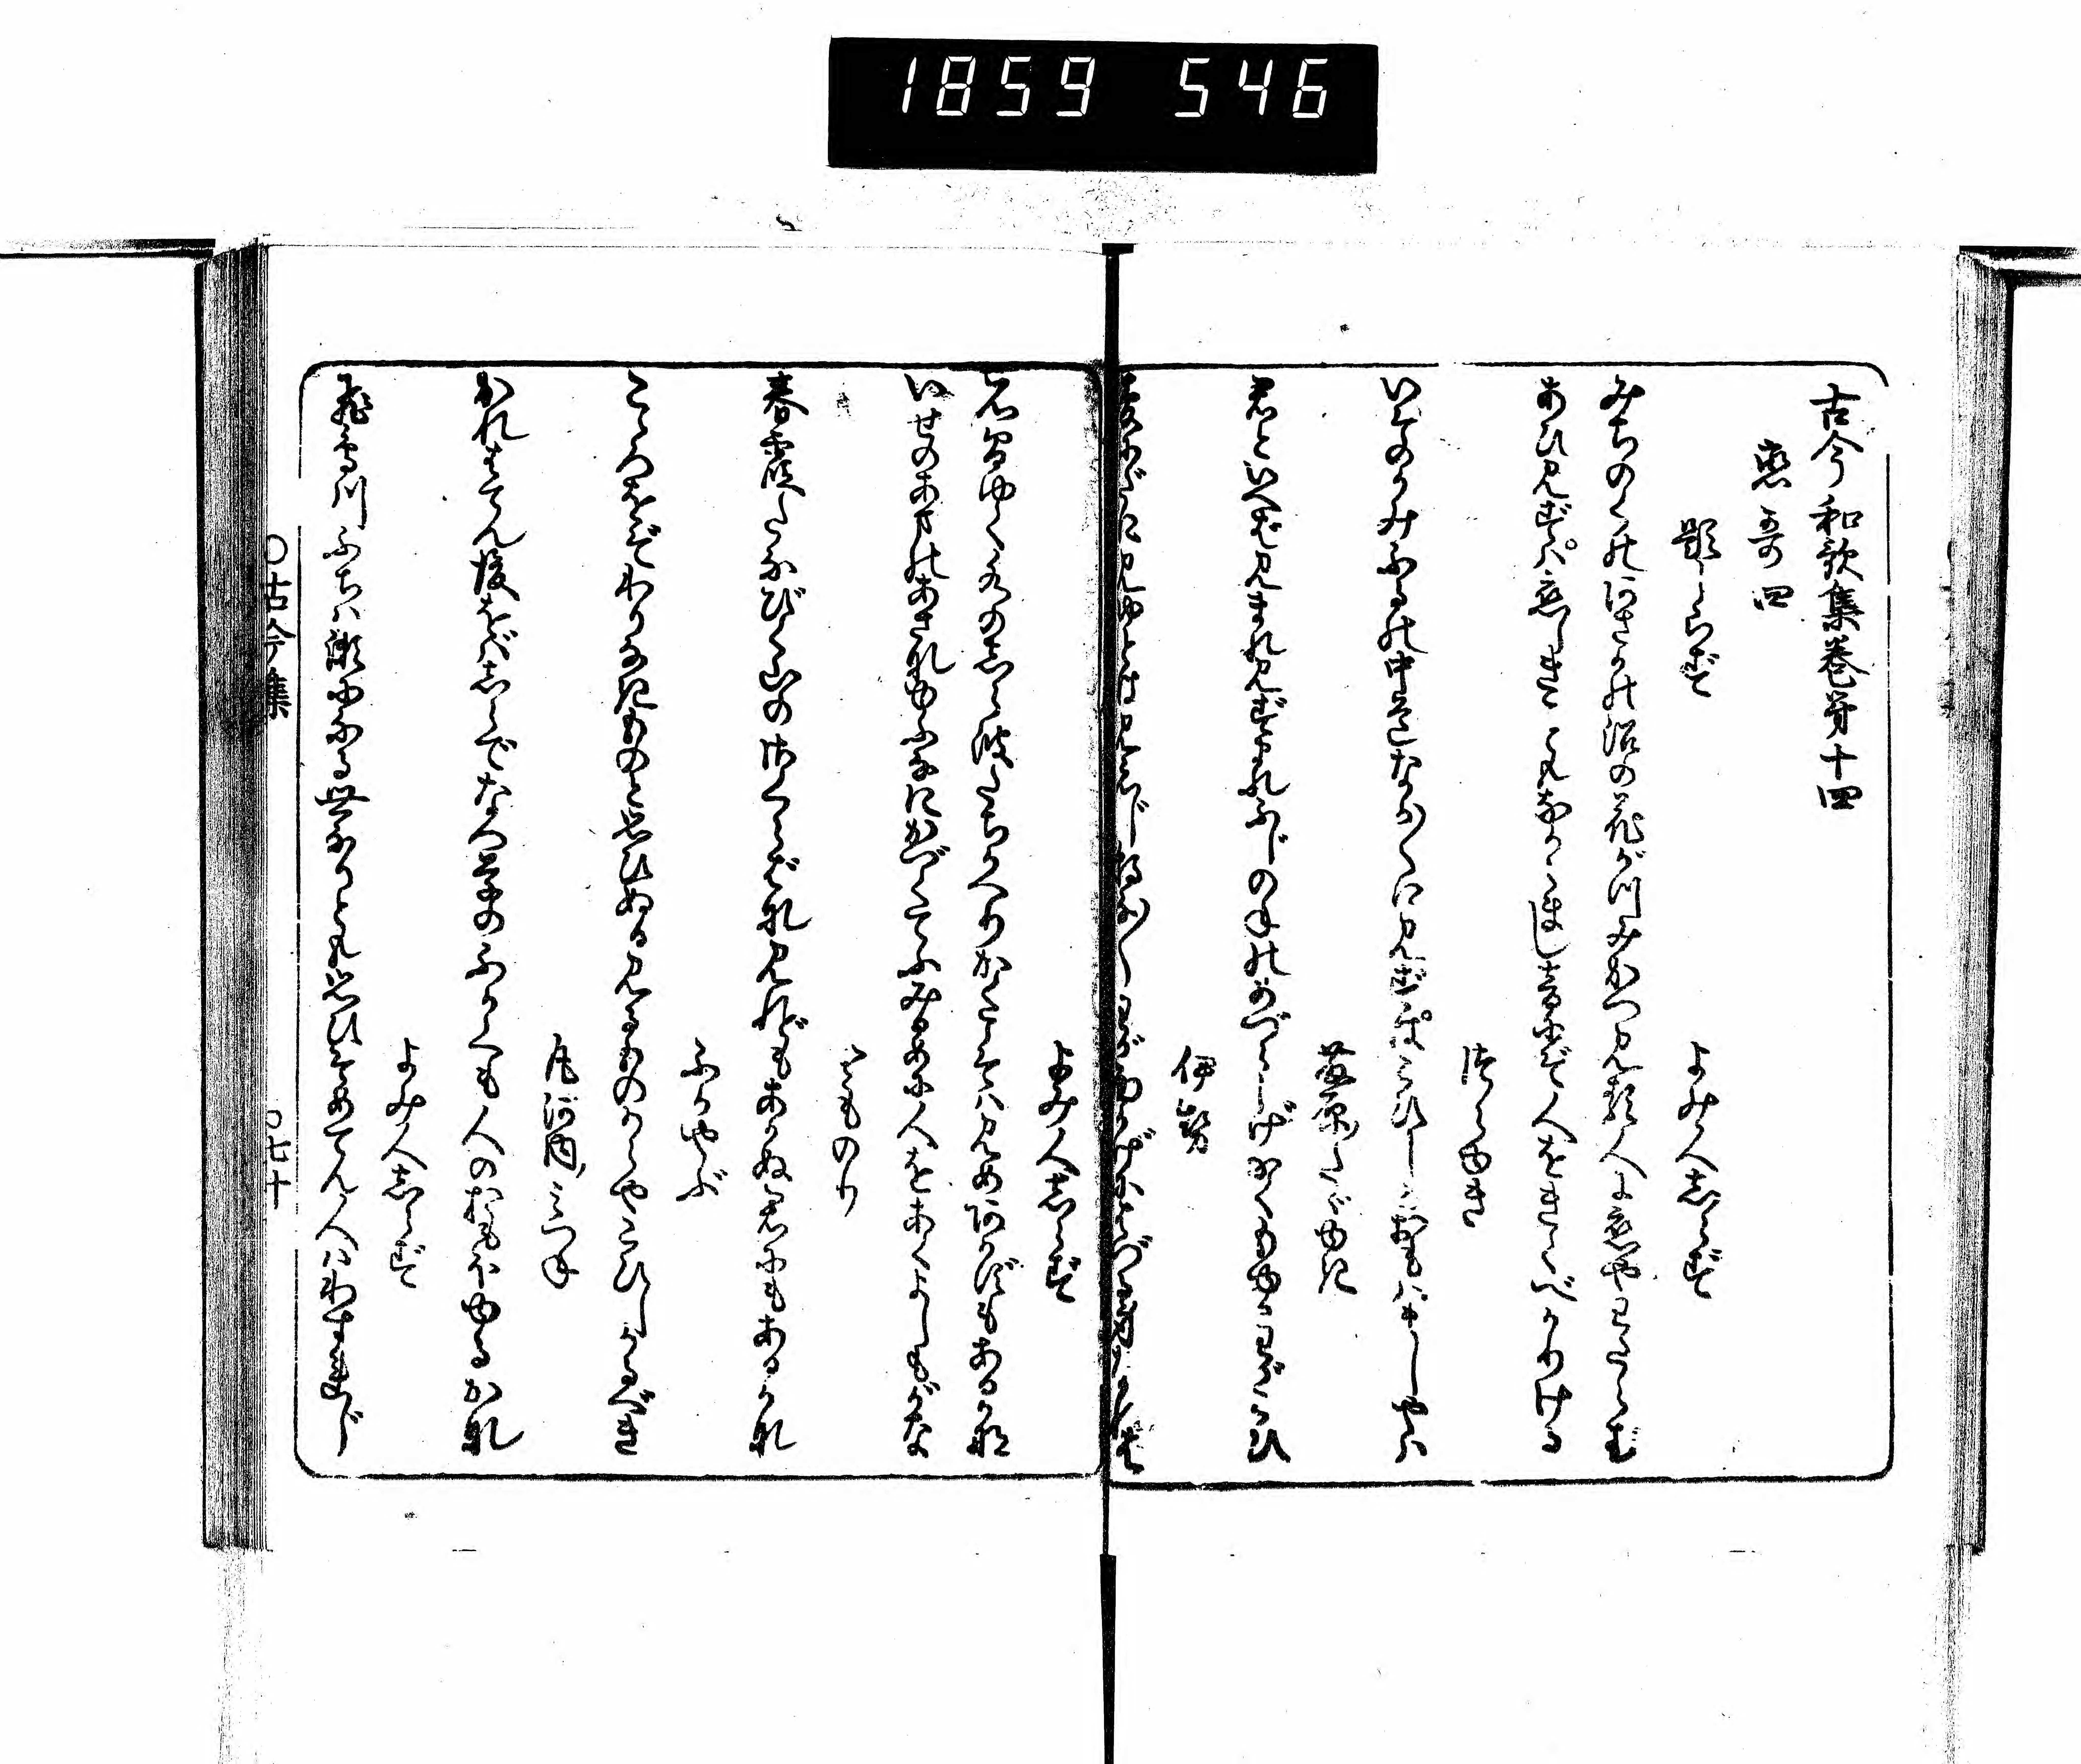 1859 546
古今和歌集巻第十四
恋哥四
題しらず
よみ人志らず
みちのくのあさかの沼の花がつみかつ見る人に恋やわたらむ
あひ見ずは恋しきこともなからまし音にぞ人をきくべかりける
つらゆき
いそのかみふるの中道なか〱に見ずはこひしとおもはましやは
藤原たゞゆき
君といへば見まれ見ずまれふじのねのめづらしげなくもゆるわがこひ
伊勢
夢にだに見ゆとは見えじ朝な〱わがおもかげにはづる身なれば
よみ人志らず
石まゆく水の志ら波たちかへりかくこそは見めあかずもあるかな
いせのあまのあさなゆふなにかづくてふみるめに人をあくよしもがな
とものり
春霞たなびく山のさくらばな見れどもあかぬ君にもあるかな
ふかやぶ
こゝろをぞわりなきものと思ひぬる見るものからやこひしかるべき
凡河内みつね
かれはてん後をば志らでなつ草のふかくも人のおもほゆるかな
よみ人志らず
飛鳥川ふちは瀬になる世なりとも思ひそめてん人はわすれじ
〇古今集
〇七十